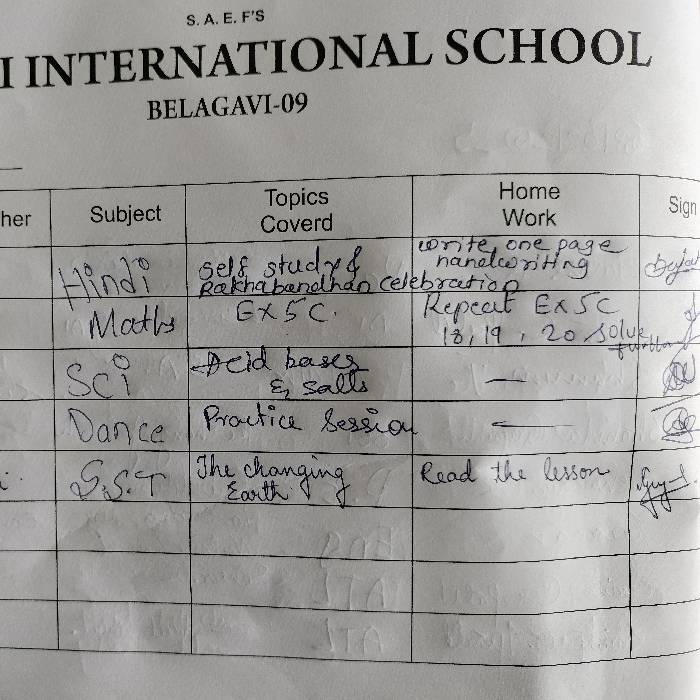 S. A. E. F'S
I INTERNATIONAL SCHOOL
BELAGAVI-09
her Subject Topics Coverd Home Work Sign
Hindi self study & Rakhabandhan celebration write one page handwriting
Maths Ex 5 C. Repeat Ex 5C 18, 19, 20 solve
Sci Acid bases & salts —
Dance Practice Session —
S.S.T The changing Earth Read the lesson